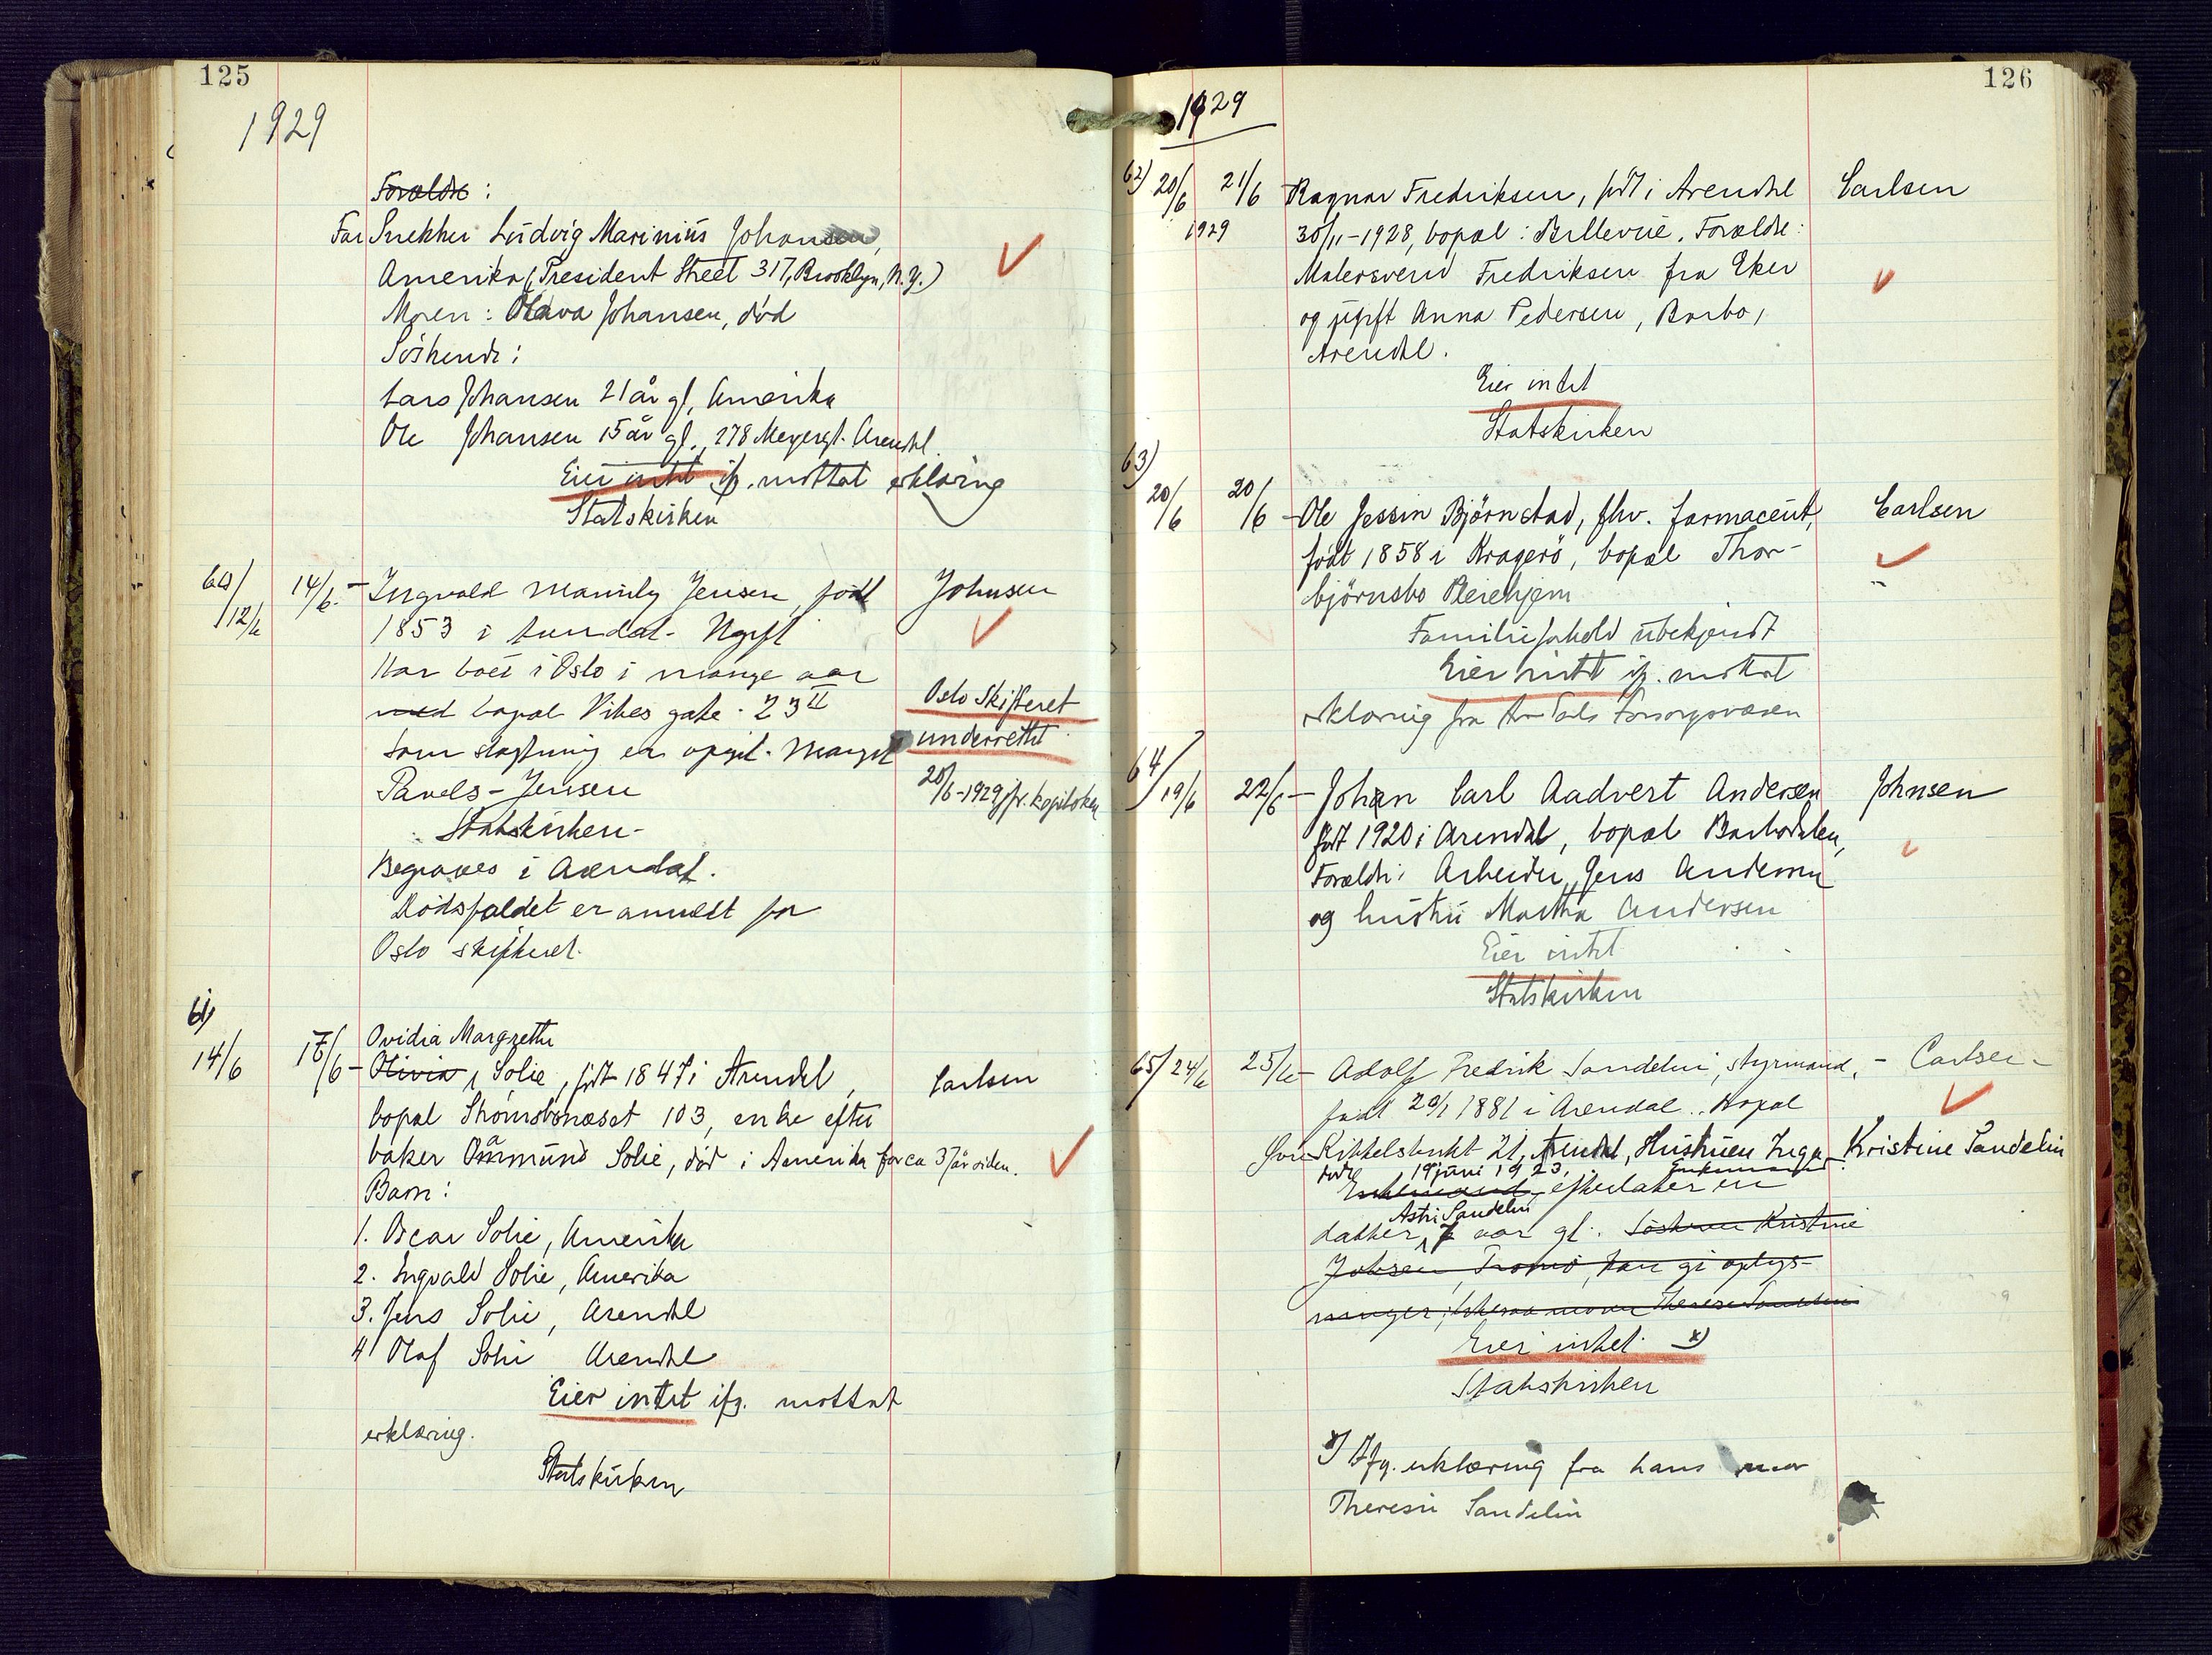 125
1929
Forældre :
Far Snekker Ludvig Marinius Johansen,
Amerika (President Street 317, Brooklyn, N.Y.)
Moren : Olava Johansen, död
Söskende :
Lars Johansen 21 år gl, Amerika
Ole Johansen 15 år gl., 278 Meyergt. Arendal.
Eier intet ifg. mottat erklæring
Statskirken
60/ 12/6 14/6 - Ingvald Jensen, född Johnsen
1853 i Arendal - Ugift
Har boet i Oslo i mange aar
med bopæl Vibes gate 23 II Oslo Skifteret
Som slegtning er opgit Margit underrettet
Pavels-Jensen 20/6-1929 jfr. kopiboken
Statskirken -
Begraves i Arendal.
Dödsfaldet er anmeldt for
Oslo skifteret.
61)
Ovidia Margrethe
14/6 17/6 - Olivia Solie, födt 1847 i Arendal, Carlsen
bopæl Strömsbonæset 103, enke efter
baker Åmmund Solie, död i Amerika for ca 37 år siden.
Barn :
1. Oscar Solie, Amerika
2. Ingvald Solie, Amerika
3. Jens Solie, Arendal
4 Olaf Solie Arendal
Eier intet ifg. mottat
erklæring.
Statskirken
126
1929
62) 20/6 1929 21/6 Ragnar Fredriksen, födt i Arendal Carlsen
30/11-1928, bopæl : Bellevue. Forældre :
Malersvend Fredriksen fra Eker
og ugift Anna Pedersen, Barbo,
Arendal.
Eier intet
Statskirken
63)
20/6 20/6 - Ole Jessen Björnstad, fhv. farmaceut, Carlsen
födt 1858 i Kragerö, bopæl Thor-
björnsbo Pleiehjem
Familieforhold ubekjendt
Eier intet ifg. mottat
erklæring fra Arendals Forsorgsvæsen
64/ 19/6 22/6 - Johan Carl Aadvert Andersen Johnsen
födt 1920 i Arendal, bopæl Barbodalen,
Forældre: Arbeider Jens Andersen
og hustru Martha Andersen
Eier intet
Statskirken
65/ 24/6 25/6 - Adolf Fredrik Sandelin, styrmand, - Carlsen -
födt 20/1 1881 i Arendal. Bopæl
Øvre Kittelsbukt 21, Arendal, Hustruen Inga Kristine Sandelin
döde 19 juni 1923, Enkemand
Enkemand, efterlater en
Astri Sandelin
datter, 7 aar gl. Söstren Kristine
Jobsen Tromö, kan gi oplys-
ninger, likesaa moren Therese Sandelin
Eier intet x)
Statskirken
x) Ifg. erklæring fra hans mor
Therese Sandelin